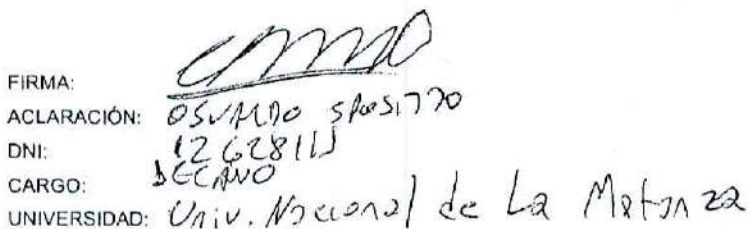 FIRMA:
ACLARACIÓN: OSVALDO SPOSITTO
DNI:
CARGO: DECANO
UNIVERSIDAD: Univ. Nacional de La Matanza